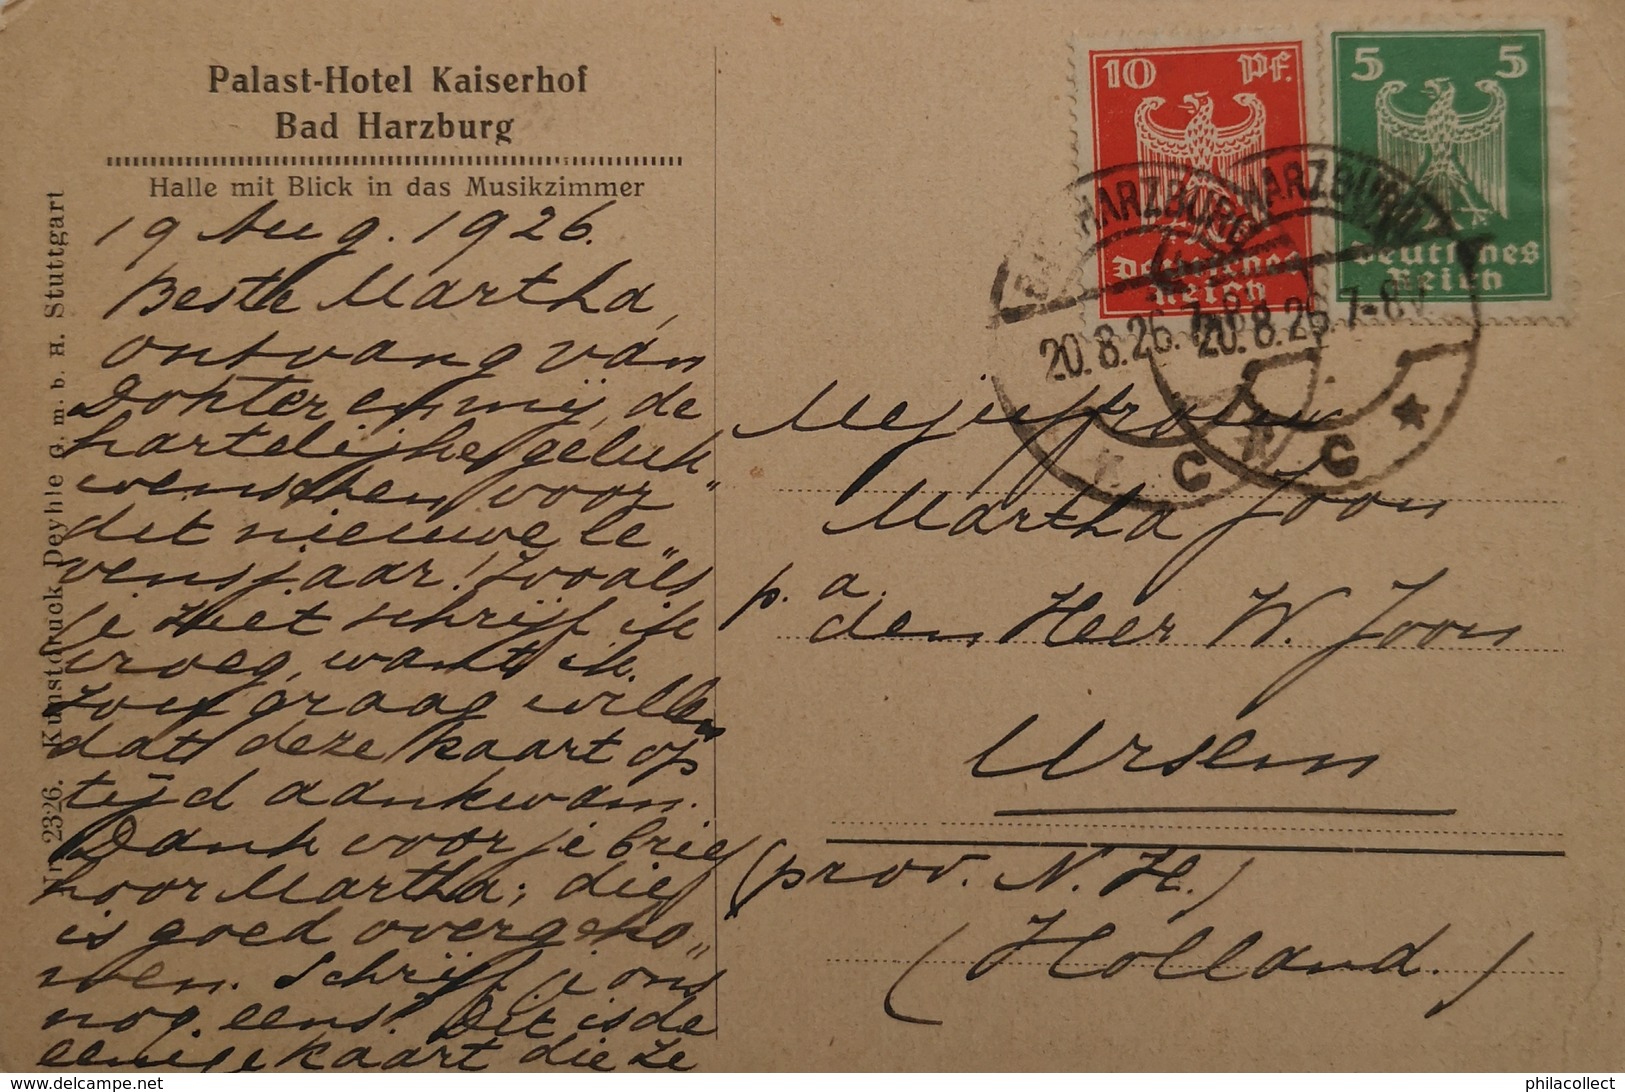 Palast-Hotel Kaiserhof
Bad Harzburg
Halle mit Blick in das Musikzimmer
19 Aug. 1926.
Beste Martha,
ontvang van
Dokter en mij de
hartelijke geluk„
wenschen voor
dit nieuwe le„
vensjaar! Zooals
je ziet schrijf ik
vroeg, want ik
zou graag willen
dat deze kaart op
tijd aankwam.
Dank voor je brief
hoor Martha; die
is goed overgeko„
men. Schrijf je ons
nog eens? Dit is de
eenige kaart die ze
Nr. 2326. Kunstdruck Deyhle G. m. b. H. Stuttgart
10 Pf.
Deutsches
Reich
5 5
Deutsches
Reich
HARZBURG
20.8.26.7-8
C
HARZBURG
20.8.26.7-8V
C
Mejuffrouw
Martha Joon
p. a.
den Heer W. Joon
Ursem
(prov. N. H.)
(Holland.)
https://www.delcampe.net
philacollect